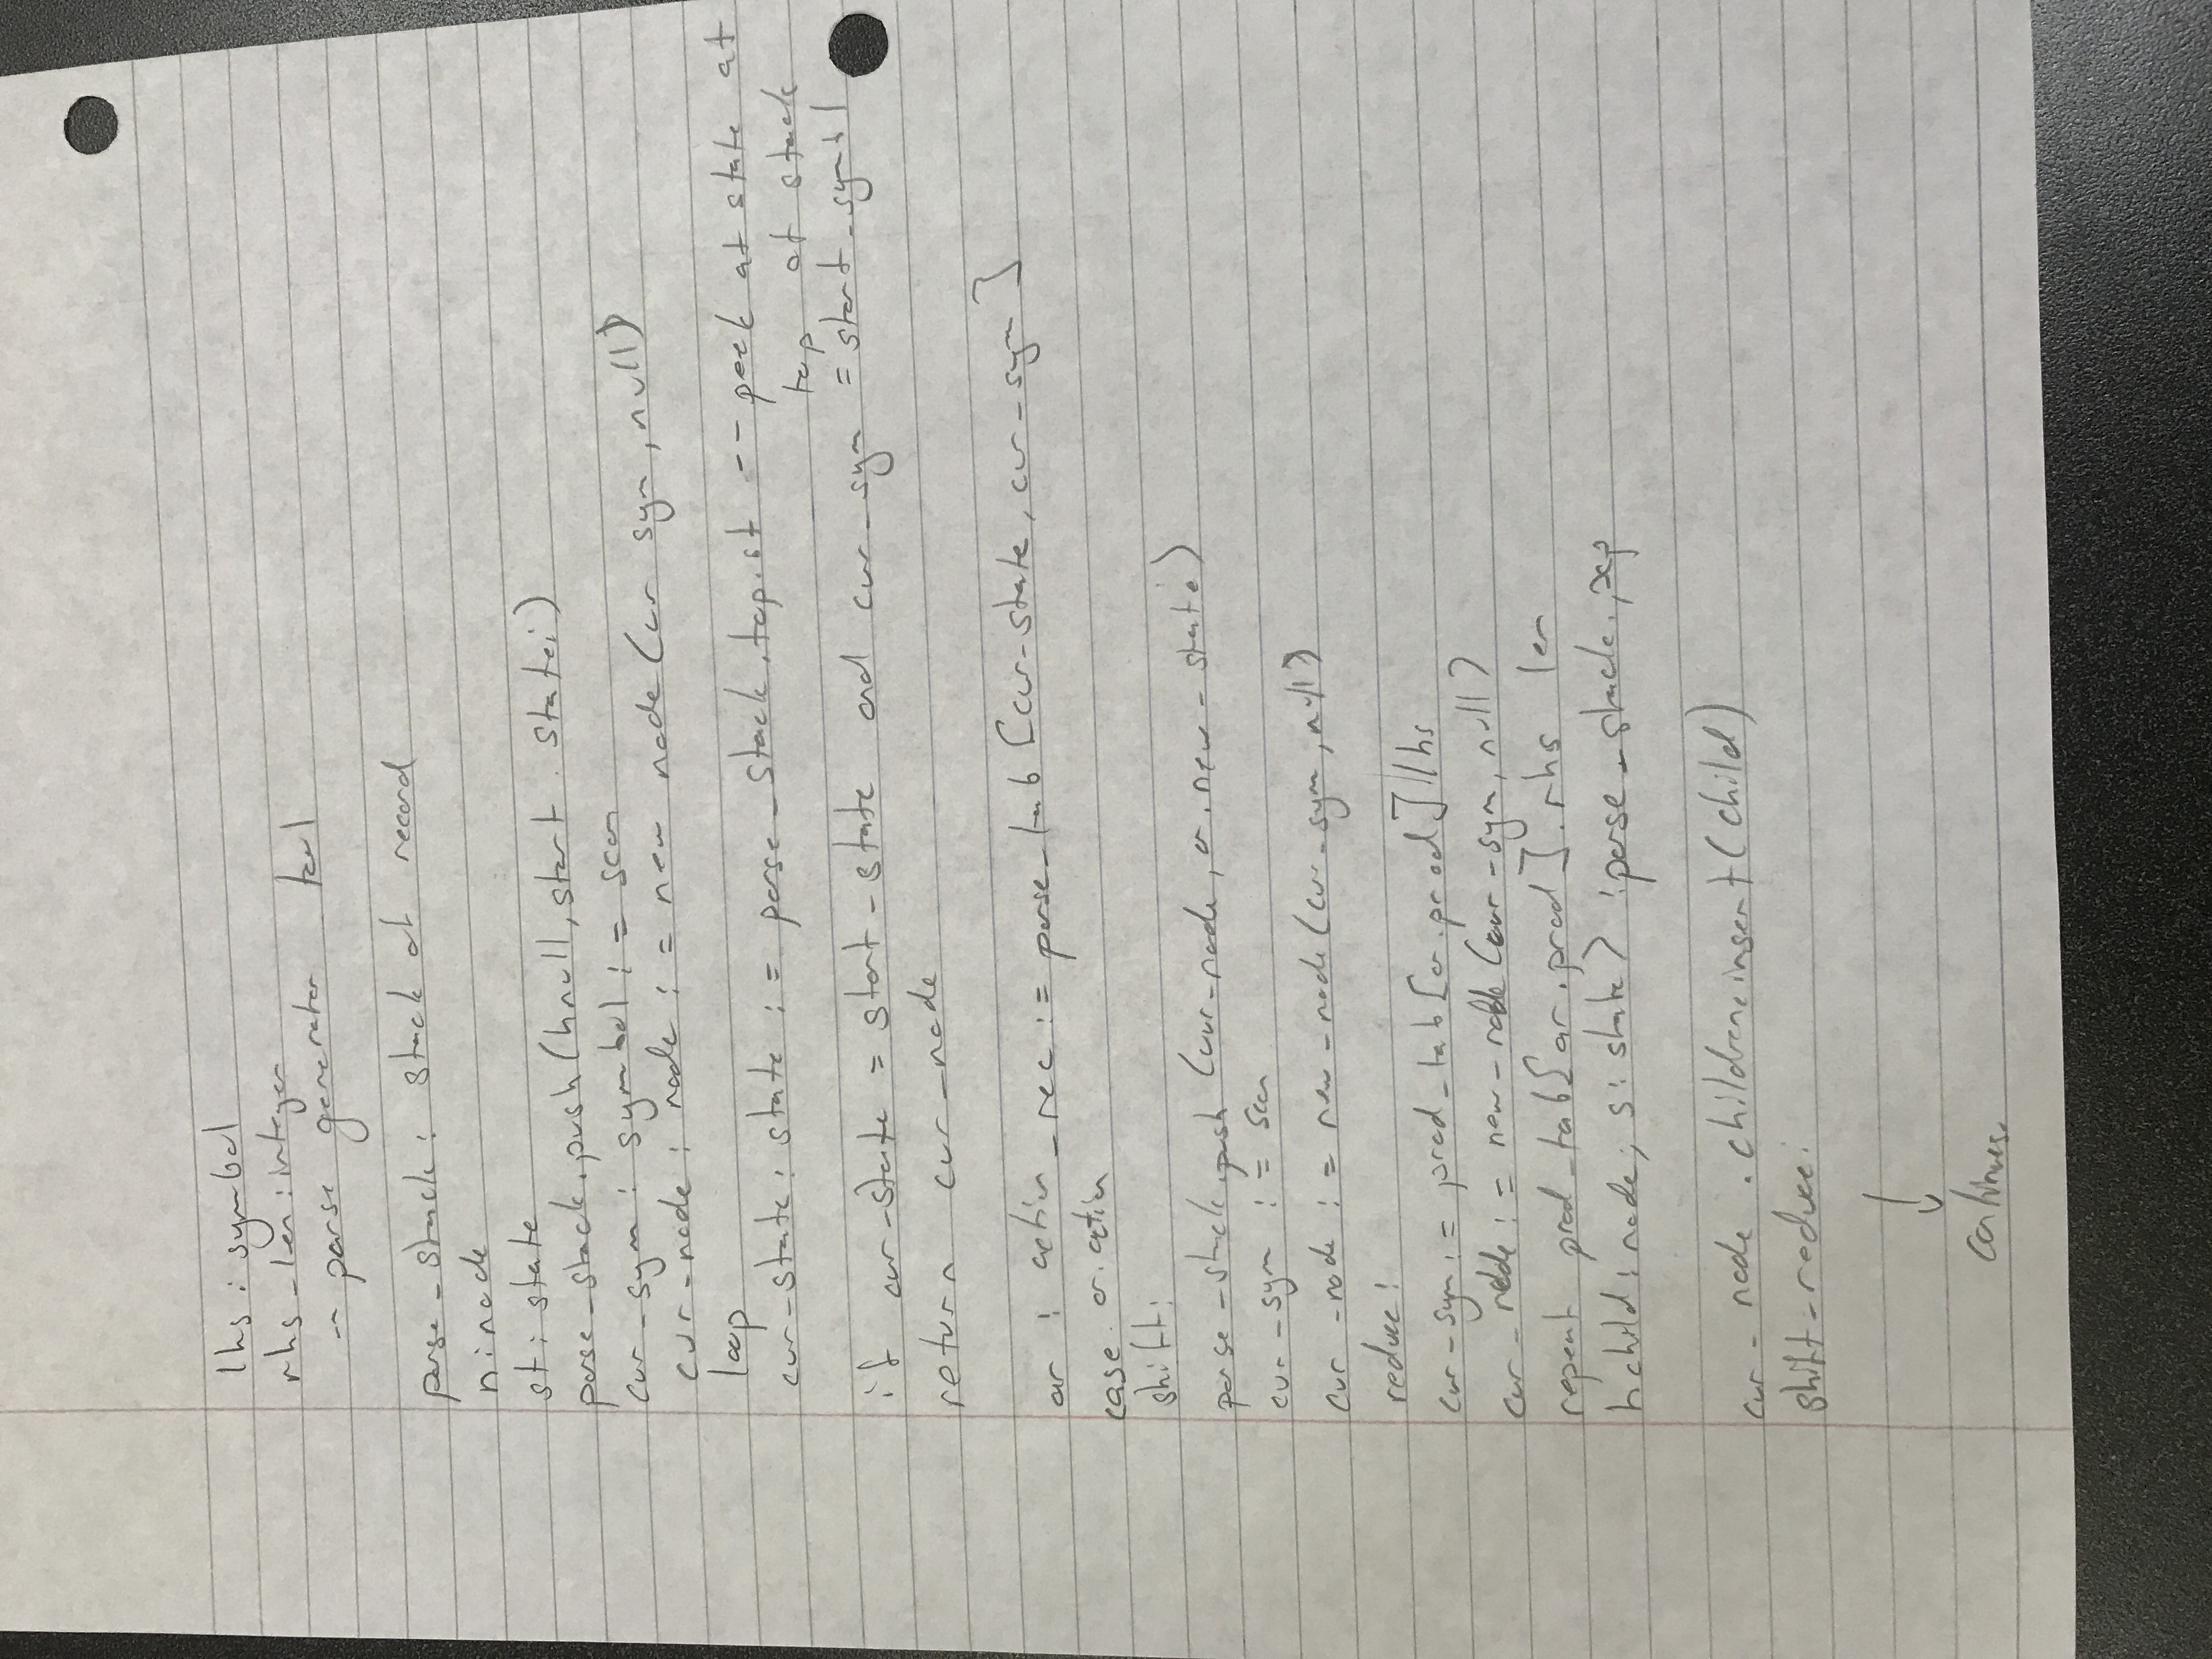 lhs : symbol
rhs_len : integer
-- parse generator tool
parse_stack : stack of record
n : node
st : state
parse_stack.push(hnull, start . statei)
cur_sym : symbol := scan
cur_node : node := new node(cur sym, null)
loop
cur_state : state := parse_stack.top.st -- peek at state at
top of stack
if cur_state = start_state and cur_sym = start_symbl
return cur_node
ar : action_rec := parse_tab[cur_state, cur_sym]
case ar.action
shift:
parse_stack.push (cur_node, ar.new_state)
cur_sym := scan
cur_node := new_node(cur_sym, null)
reduce:
cur_sym := prod_tab[ar.prod]lhs
cur_node := new_node(cur_sym, null)
repeat prod_tab[ar.prod].rhs len
hchild : node; s : state) : parse_stack.pop
cur_node .children.insert(child)
shift_reduce:
↓
continues.